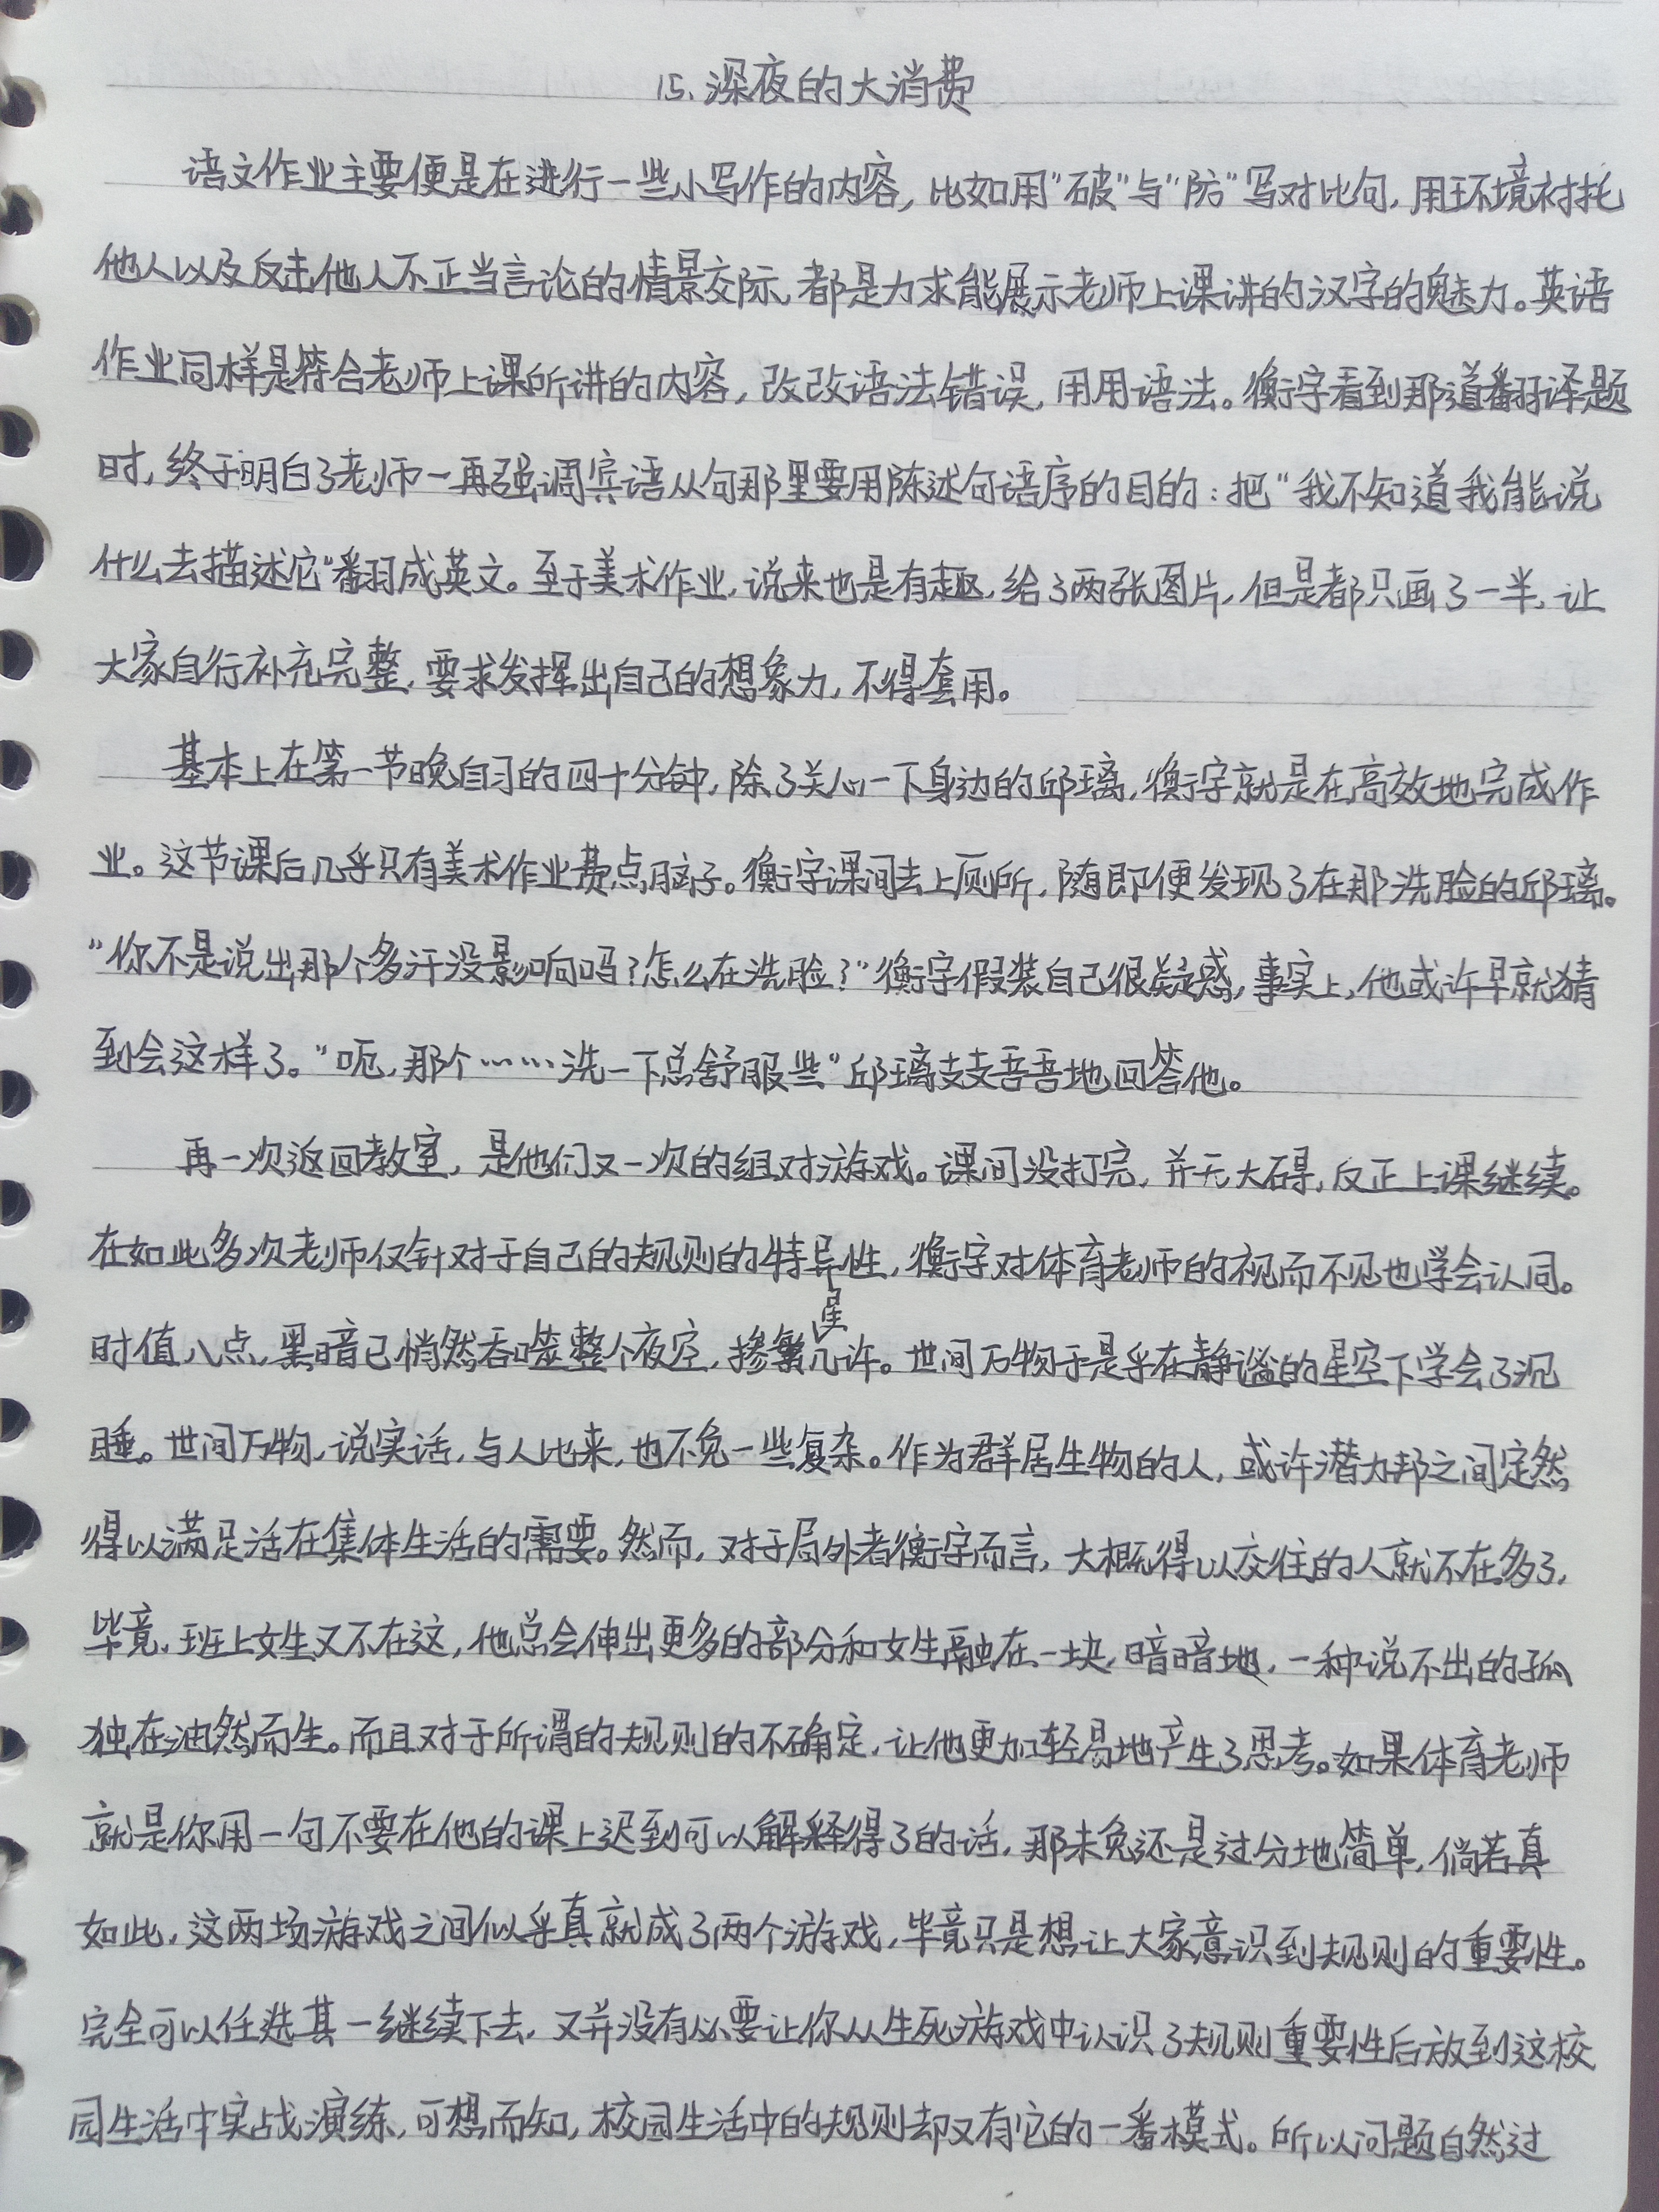 15.深夜的大消费
语文作业主要便是在进行一些小写作的内容，比如用“破”与“防”写对比句，用环境衬托
他人以及反击他人不正当言论的情景交际，都是力求能展示老师上课讲的汉字的魅力。英语
作业同样是符合老师上课所讲的内容，改改语法错误，用用语法。衡宇看到那道翻译题
时，终于明白了老师一再强调宾语从句那里要用陈述句语序的目的：把“我不知道我能说
什么去描述它”翻成英文。至于美术作业，说来也是有趣，给了两张图片，但是都只画了一半，让
大家自行补充完整，要求发挥出自己的想象力，不得套用。
基本上在第一节晚自习的四十分钟，除了关心一下身边的邱璃，衡宇就是在高效地完成作
业。这节课后几乎只有美术作业费点脑子。衡宇课间去上厕所，随即便发现了在那洗脸的邱璃。
“你不是说出那个多汗没影响吗？怎么在洗脸？”衡宇假装自己很疑惑，事实上，他或许早就猜
到会这样了。“呃，那个……洗一下总舒服些”邱璃支支吾吾地回答他。
再一次返回教室，是他们又一次的组对游戏。课间没打完，并无大碍，反正上课继续。
在如此多次老师仅针对于自己的规则的特异性，衡宇对体育老师的视而不见也学会认同。
时值八点，黑暗已悄然吞噬整个夜空，掺繁星几许。世间万物于是乎在静谧的星空下学会了沉
睡。世间万物，说实话，与人比来，也不免一些复杂。作为群居生物的人，或许潜力邦之间定然
得以满足活在集体生活的需要。然而，对于局外者衡宇而言，大概得以交往的人就不在多了，
毕竟，班上女生又不在这，他总会伸出更多的部分和女生融在一块，暗暗地，一种说不出的孤
独在油然而生。而且对于所谓的规则的不确定，让他更加轻易地产生了思考。如果体育老师
就是你用一句不要在他的课上迟到可以解释得了的话，那未免还是过分地简单，倘若真
如此，这两场游戏之间似乎真就成了两个游戏，毕竟只是想让大家意识到规则的重要性。
完全可以任选其一继续下去，又并没有必要让你从生死游戏中认识了规则重要性后放到这校
园生活中实战演练，可想而知，校园生活中的规则却又有它的一番模式。所以问题自然过